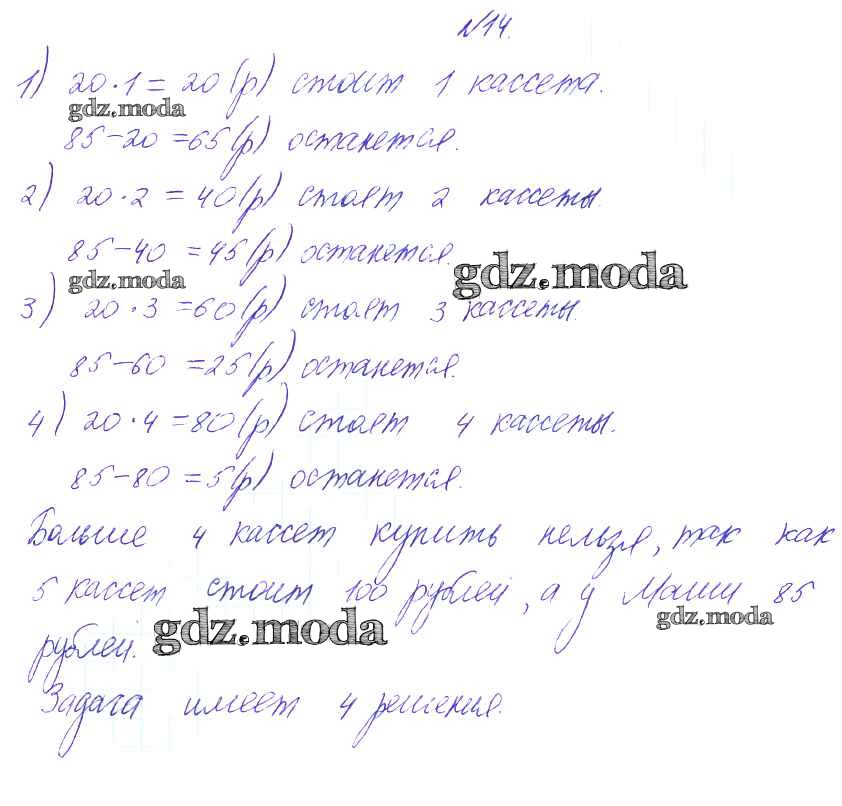 №14.
1) 20·1=20(р) стоит 1 кассета.
gdz.moda
85-20=65(р) останется.
2) 20·2=40(р) стоят 2 кассеты.
85-40=45(р) останется.
gdz.moda
gdz.moda
3) 20·3=60(р) стоят 3 кассеты.
85-60=25(р) останется.
4) 20·4=80(р) стоят 4 кассеты.
85-80=5(р) останется.
Больше 4 кассет купить нельзя, так как
5 кассет стоит 100 рублей, а у Маши 85
gdz.moda
gdz.moda
рублей.
Задача имеет 4 решения.